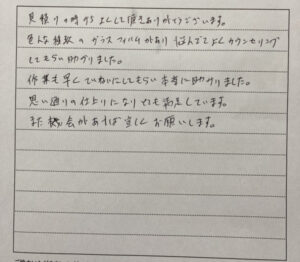 見積りの時からよくして頂きありがとうございます。
色んな種類のガラスフィルムがあり悩んでてよくカウンセリング
してもらい助かりました。
作業も早くていねいにしてもらい本当に助かりました。
思い通りの仕上りになりとても満足しています。
また機会があれば宜しくお願いします。